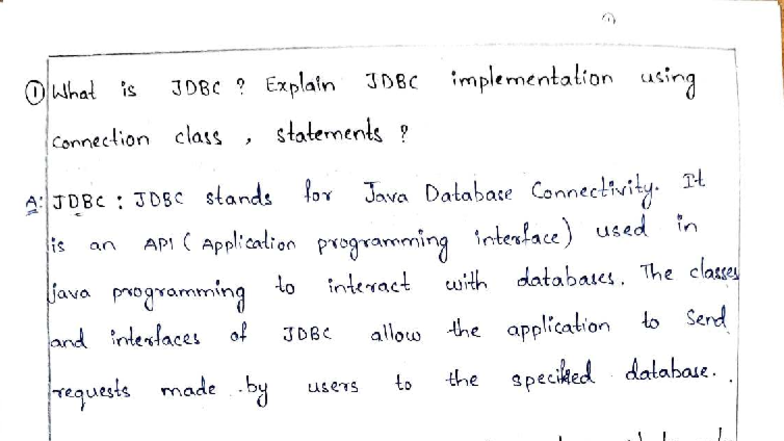 ① What is JDBC ? Explain JDBC implementation using
Connection class , statements ?
A: JDBC : JDBC stands for Java Database Connectivity. It
is an API ( Application programming interface) used in
java programming to interact with databases. The classes
and interfaces of JDBC allow the application to send
requests made by users to the specified database.